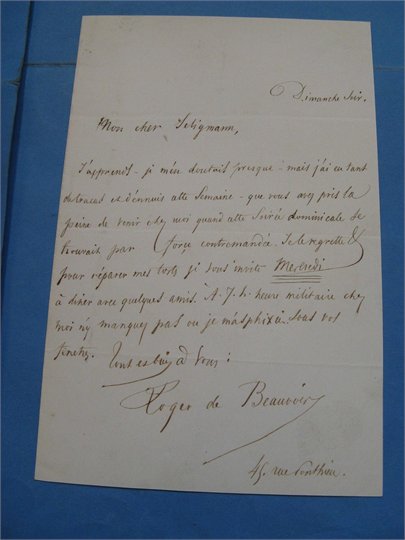 Dimanche soir.
Mon cher Seligmann,
J'apprends - je m'en doutais presque - mais j'ai eu tant
de tracas et d'ennuis cette semaine - que vous avez pris la
peine de venir chez moi quand cette soirée dominicale se
trouvait par force contremandée. Je le regrette &
pour réparer mes torts je vous invite Mercredi
à dîner avec quelques amis. A 7. h. heure militaire chez
moi n'y manquez pas ou je m'asphixie sous vos
fenêtres.
Tout à vous :
Roger de Beauvoir
45. rue Ponthieu.